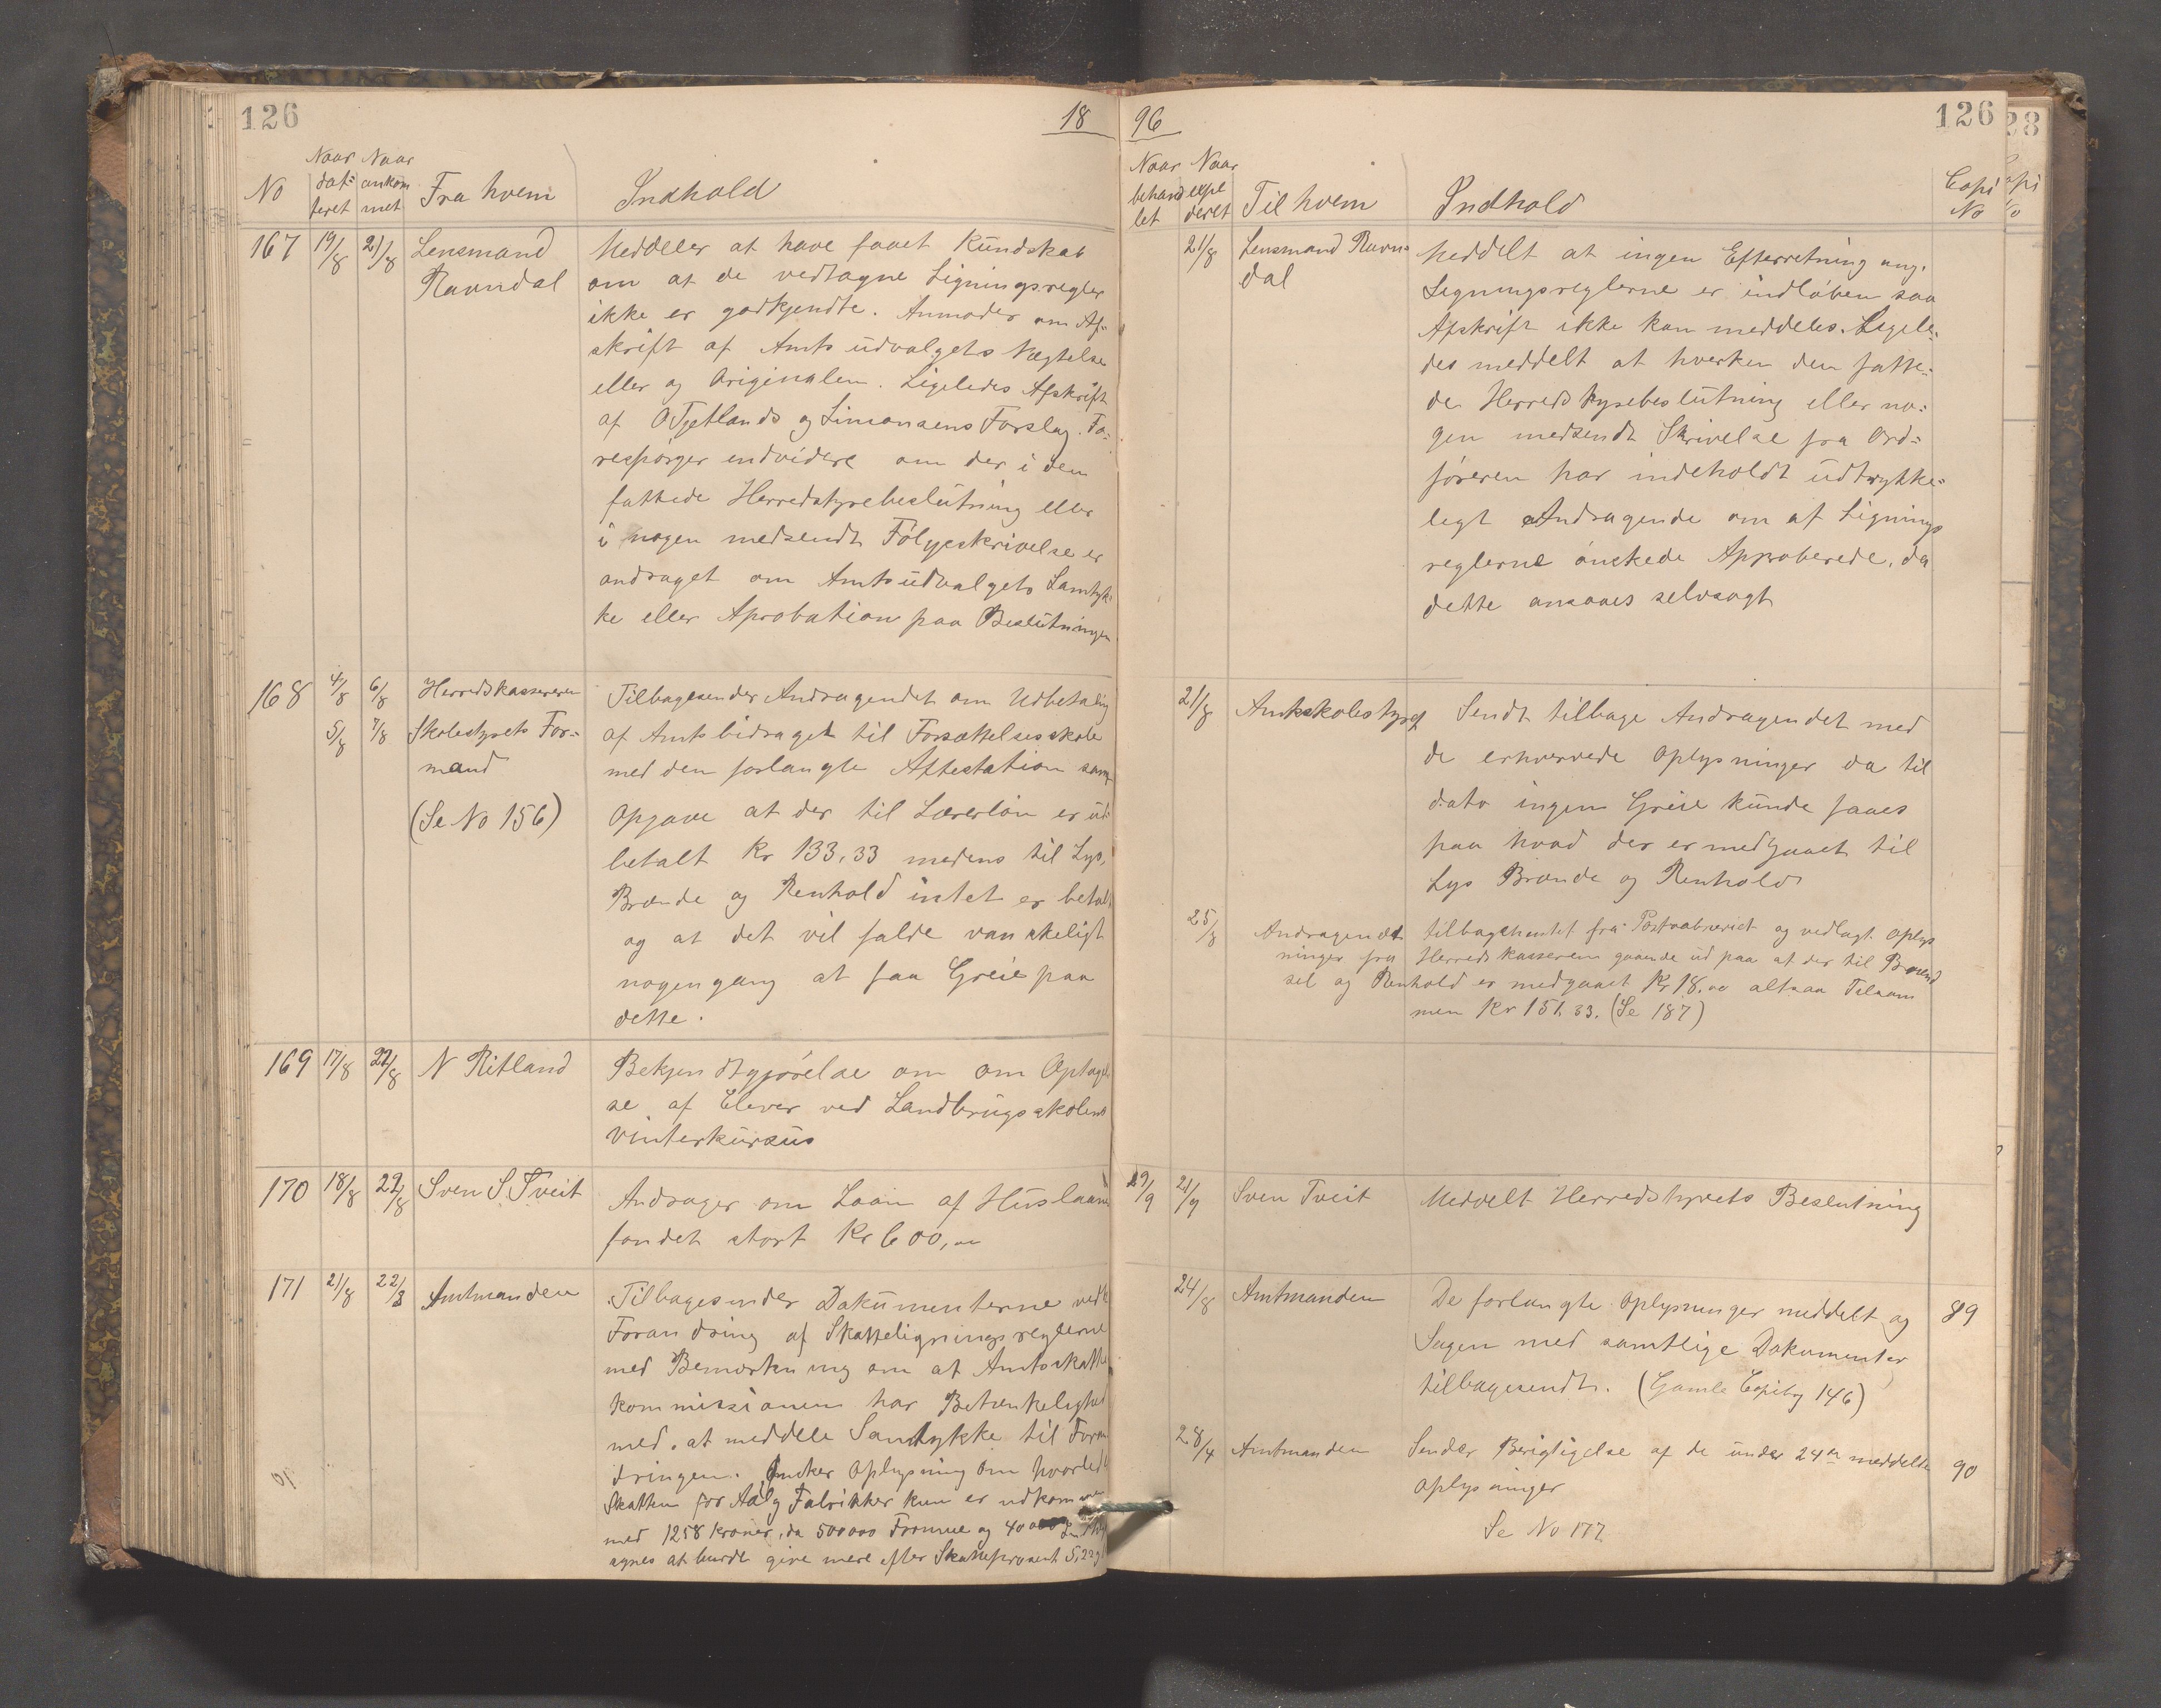 126
18
Naar Naar
No dat= ankom Fra hvem Indhold
teret met
167 19/8 21/8 Lensmand Meddeler at have faaet Kundskab
Ravndal om at de vedtagne Ligningsregler
ikke er godkjendte. Anmoder om Af=
skrift af Amtsudvalgets Nægtelse
eller og Originalen. Ligeledes Afskrift
af O Tjetlands og Simonsens Forslag. Fo=
respørger endvidere om der i den
fattede Herredstyrebeslutning eller
i nogen medsendt Følgeskrivelse er
andraget om Amtsudvalgets Samtyk=
ke eller Aprobation paa Beslutningen
168 4/8 6/8 Herredskassereren Tilbagesender Andragendet om Udbetaling
5/8 7/8 Skolestyrets For= af Amtsbidraget til Forsættelsesskole
mand med den forlangte Attestation samt
(Se No 156) Opgave at der til Lærerløn er ud
betalt Kr 133,33 medens til Lys,
Brænde og Renhold intet er betalt
og at det vil falde vanskeligt
nogen gang at faa Greie paa
dette.
169 17/8 22/8 N Ritland Bekjendtgjørelse om om Optagel
se af Elever ved Landbrugsskolens
Vinterkursus
170 18/8 22/8 Sven S Tveit Andrager om Laan af Huslaane
fondet stort Kr 600,00
171 21/8 22/8 Amtmanden Tilbagesender Dokumenterne vedk
Forandring af Skatteligningsreglerne
med Bemærkning om at Amtsskatte
kommissionen har Betænkelighed
med at meddele Samtykke til Foran
dringen. Ønsker Oplysning om hvorledes
Skatten for Aalg Fabrikker kun er udkommen
med 1258 Kroner, da 500000 Formue og 40000
synes at burde give mere efter Skatteprocent 5,22
96
126
Naar Naar
behand expe Til hvem Indhold Copi
let deret No
21/8 Lensmand Ravn= Meddelt at ingen Efterretning ang.
dal Ligningsreglerne er indløben saa
Afskrift ikke kan meddeles. Ligele=
des meddelt at hverken den fatte=
de Herredstyrebeslutning eller no=
gen medsendt Skrivelse fra Ord=
føreren har indeholdt udtrykke=
legt Andragende om at Lignings
reglerne ønskede Approberede, da
dette ansaaes selvsagt
21/8 Amtsskolestyret Sendt tilbage Andragendet med
de erhvervede Oplysninger da til
dato ingen Greie kunde faaes
paa hvad der er medgaaet til
Lys Brænde og Renhold
25/8 Andragendet tilbagehentet fra Postaabneriet og vedlagt Oplys
ninger fra Herredskasseren gaaende ud paa at der til Brænd
sel og Renhold er medgaaet Kr 18.00 altsaa Tilsam
men Kr 151.33. (Se 187)
29/9 21/9 Sven Tveit Meddelt Herredstyrets Beslutning
24/8 Amtmanden De forlangte Oplysninger meddelt og 89
Sagen med samtlige Dokumenter
tilbagesendt. (Gamle Copibog 146)
28/4 Amtmanden Sender Berigtigelse af de under 24de meddelte 90
Oplysninger
Se No 177
28